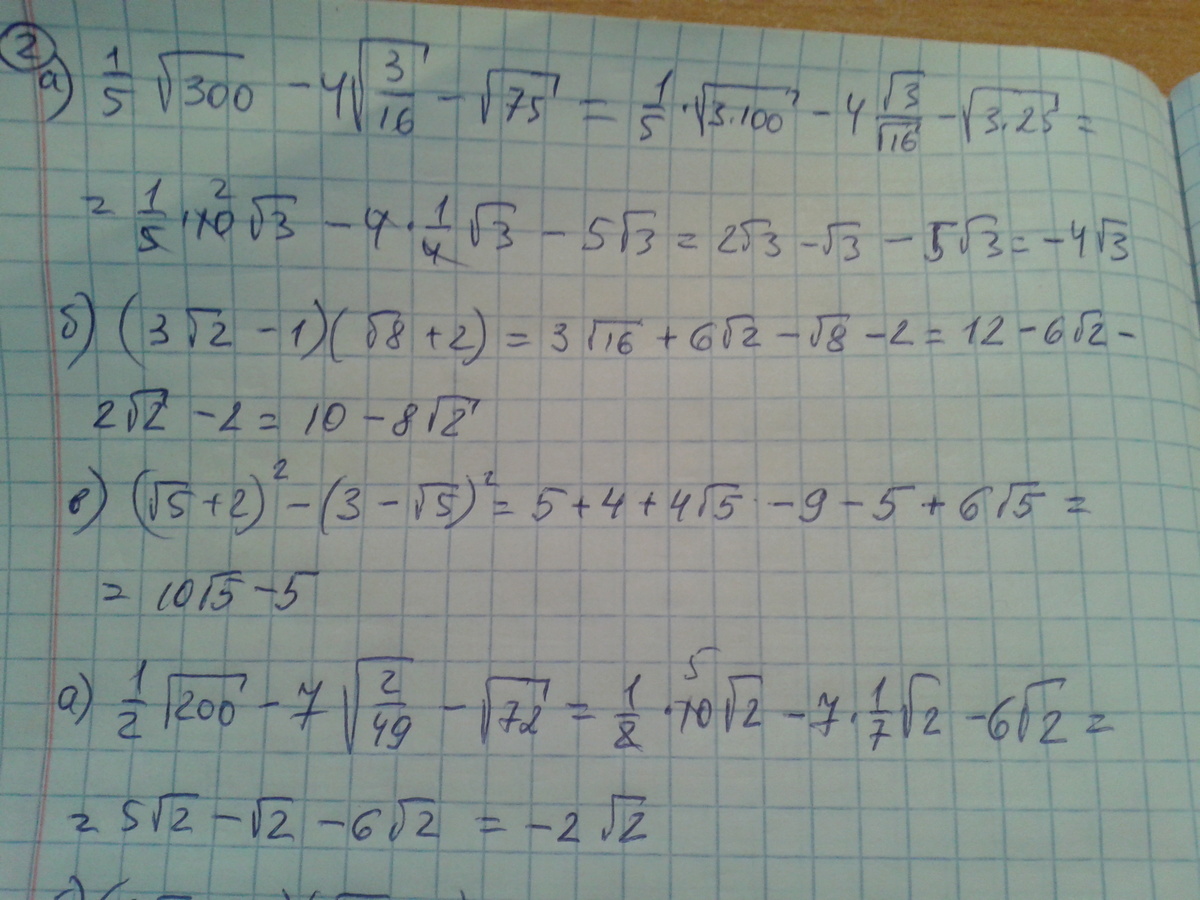 2
а) 1/5 √300 − 4√(3/16) − √75 = 1/5 · √(3·100) − 4 √3/√16 − √(3·25) =
= 1/5 · 10 2 √3 − 4 · 1/4 √3 − 5√3 = 2√3 − √3 − 5√3 = −4√3
б) (3√2 − 1)(√8 + 2) = 3√16 + 6√2 − √8 − 2 = 12 − 6√2 −
2√2 − 2 = 10 − 8√2
в) (√5 + 2)² − (3 − √5)² = 5 + 4 + 4√5 − 9 − 5 + 6√5 =
= 10√5 − 5
а) 1/2 √200 − 7 √(2/49) − √72 = 1/2 · 10 5 √2 − 7 · 1/7 √2 − 6√2 =
= 5√2 − √2 − 6√2 = −2√2